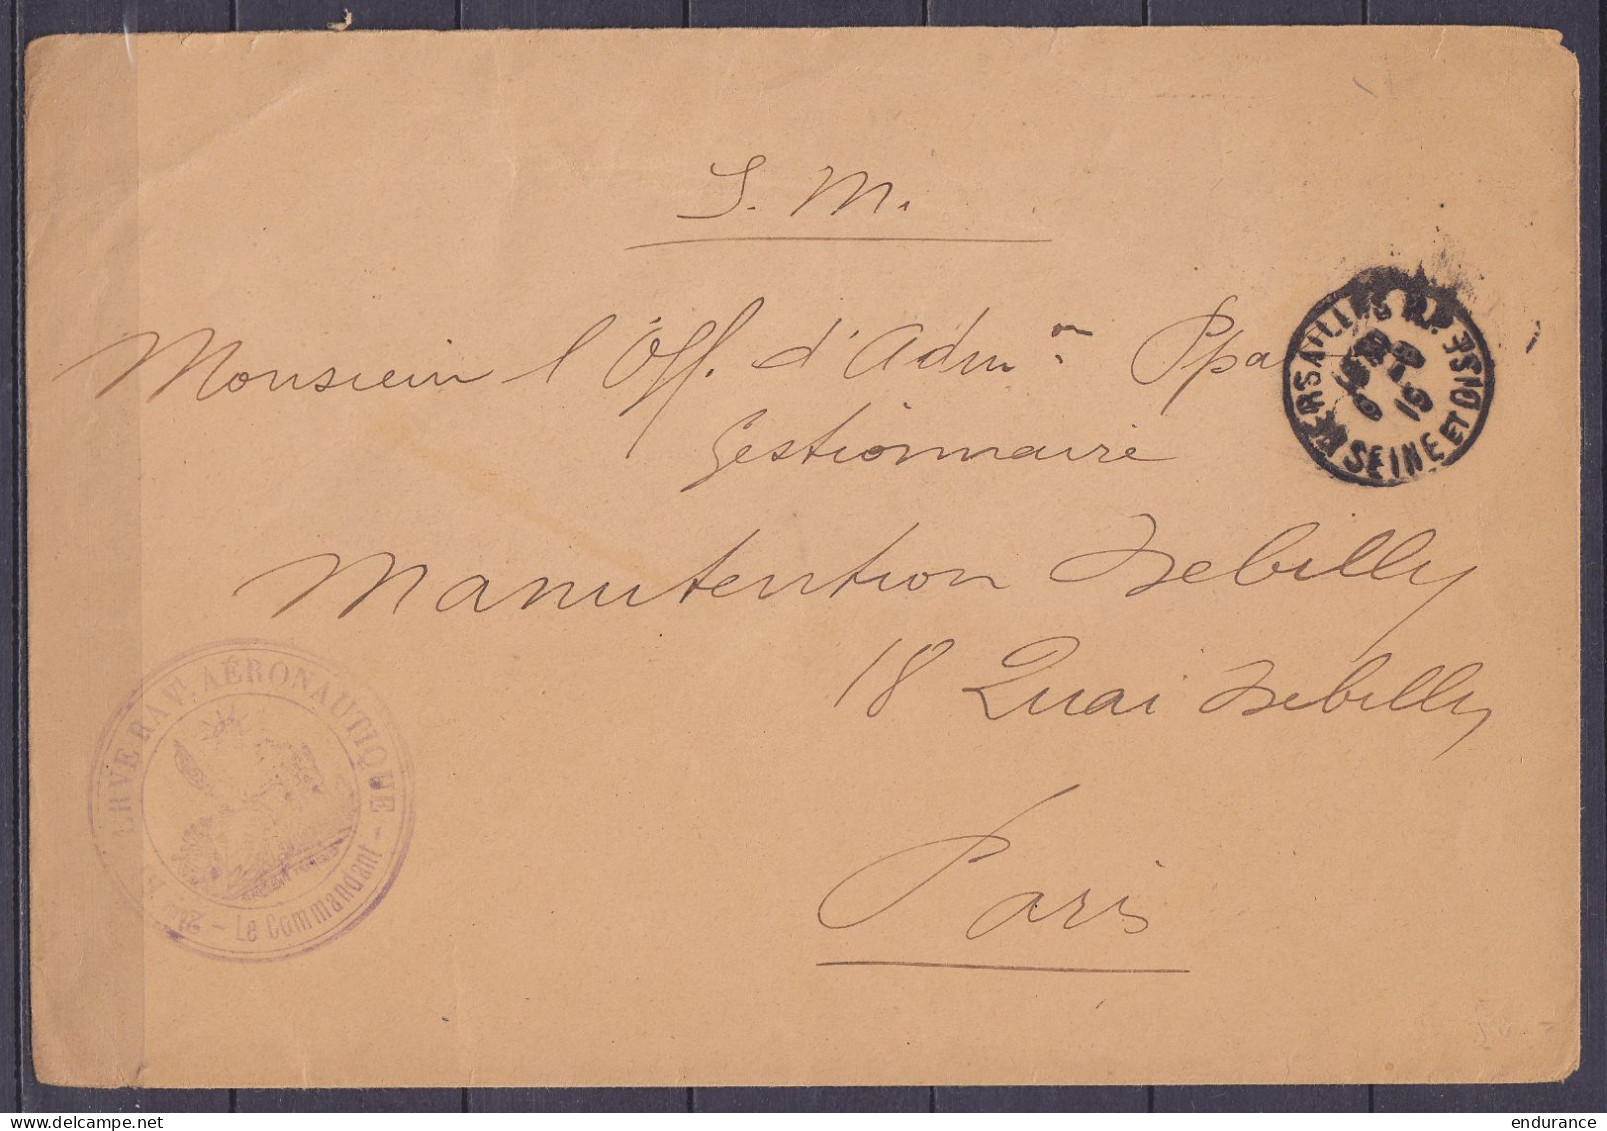 S. M.
Monsieur l'Off. d'Adm.on Ppal
Gestionnaire
Manutention Debilly
18 Quai Debilly
Paris
VERSAILLES R.P. SEINE ET OISE
RAVt. AÉRONAUTIQUE
- Le Commandant -
endurance